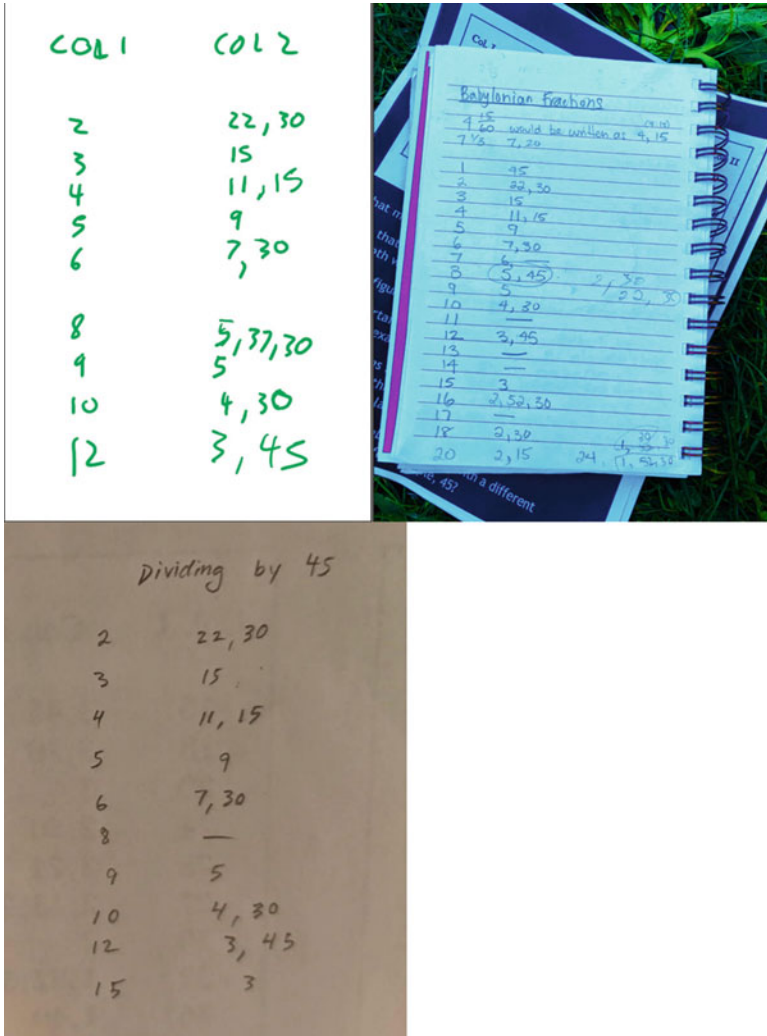 COL 1 COL 2
2 22, 30
3 15
4 11, 15
5 9
6 7, 30
,
8 5, 37, 30
9 5
10 4, 30
12 3, 45
COL I
Babylonian Fractions
4 15/60 would be written as 4, 15
7 1/3 7, 20
1 45
2 22, 30
3 15
4 11, 15
5 9
6 7, 30
7 6, —
8 5, 45 2, 30
9 5 22, 30
10 4, 30
11 —
12 3, 45
13 —
14 —
15 3
16 2, 52, 30
17 —
18 2, 30
20 2, 15 24 1, 52, 30
II
hat m
that
oth w
figu
rta
exa
th a different
e, 45?
Dividing by 45
2 22, 30
3 15
4 11, 15
5 9
6 7, 30
8 —
9 5
10 4, 30
12 3, 45
15 3